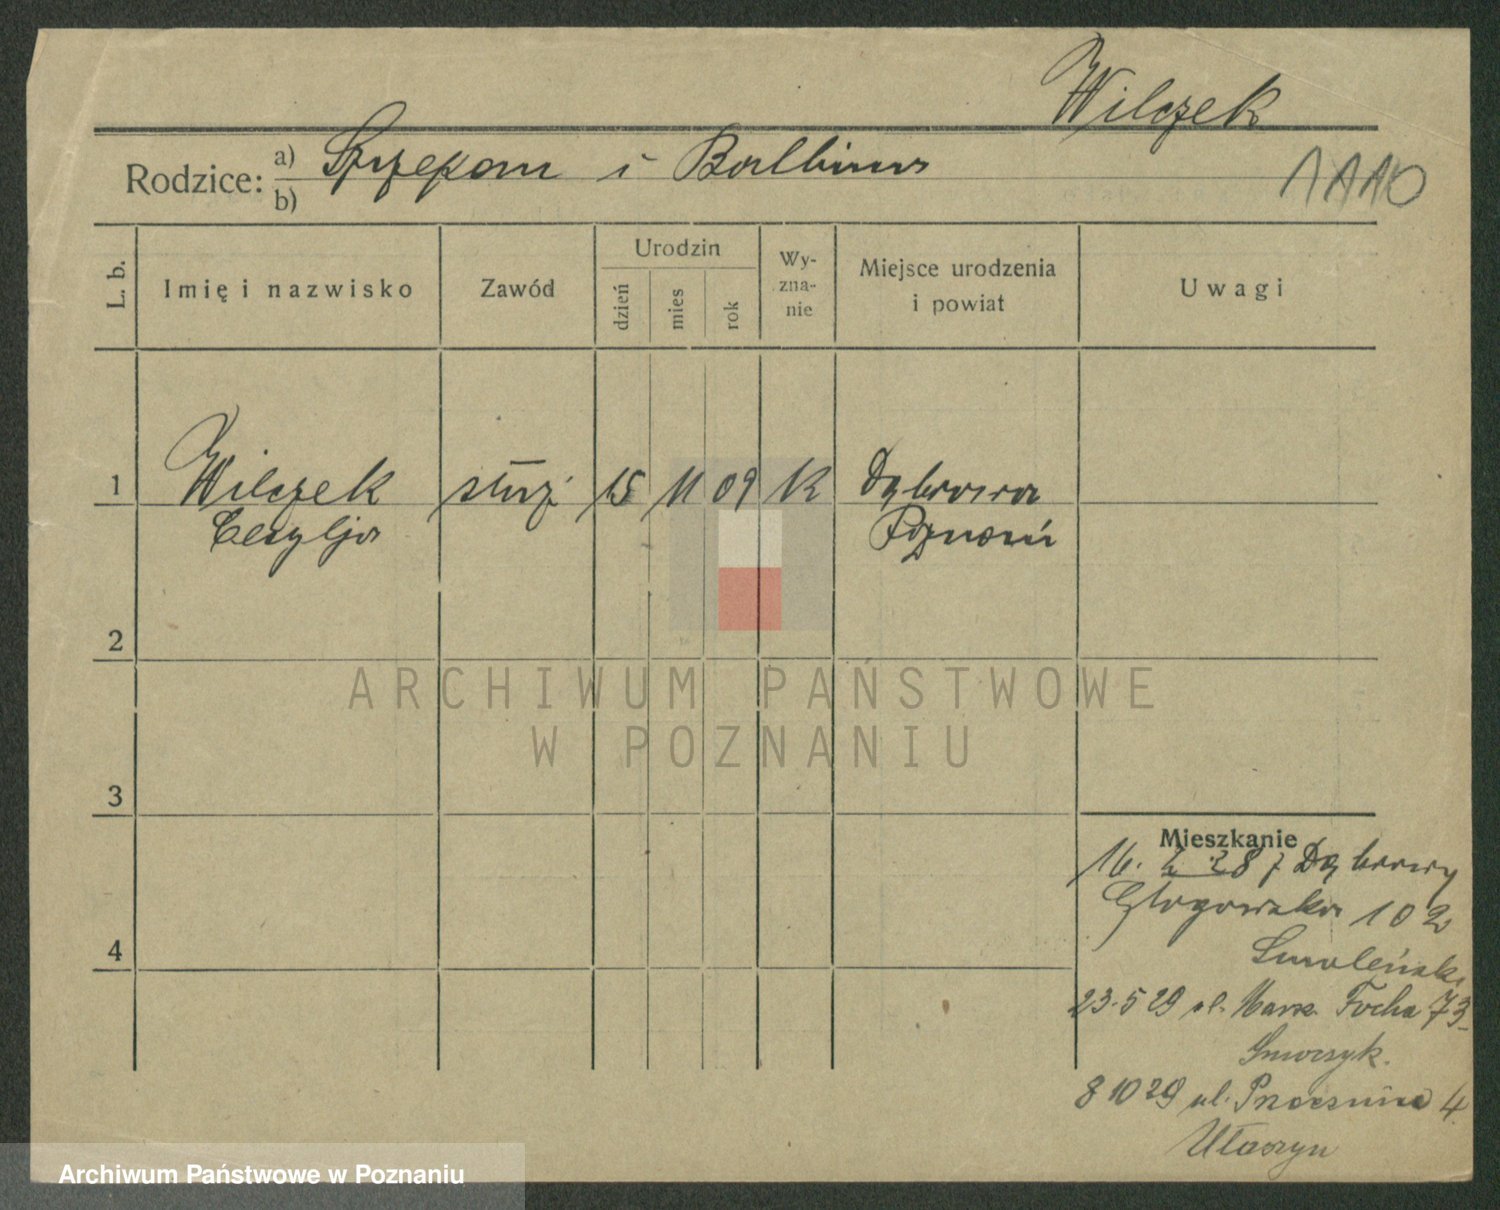 Wilczek
Rodzice: a) Szczepan i Balbina
b)
L. b.
Imię i nazwisko
Zawód
Urodzin
dzień
mies
rok
Wy-
zna-
nie
Miejsce urodzenia
i powiat
Uwagi
1 Wilczek służ 15 11 09 K Dąbrowa
Cecylja Poznań
2
3
4
Mieszkanie
16. 2. 28 z Dąbrowy
Głogowska 102
23.5 29 ul. Marsz. Focha 73
8 10 29 ul. 4
ARCHIWUM PAŃSTWOWE
W POZNANIU
Archiwum Państwowe w Poznaniu